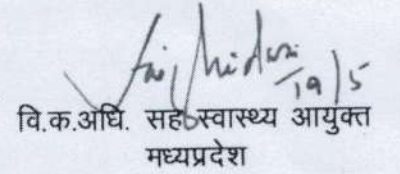 19/5
वि.क.अधि. सह स्वास्थ्य आयुक्त
मध्यप्रदेश